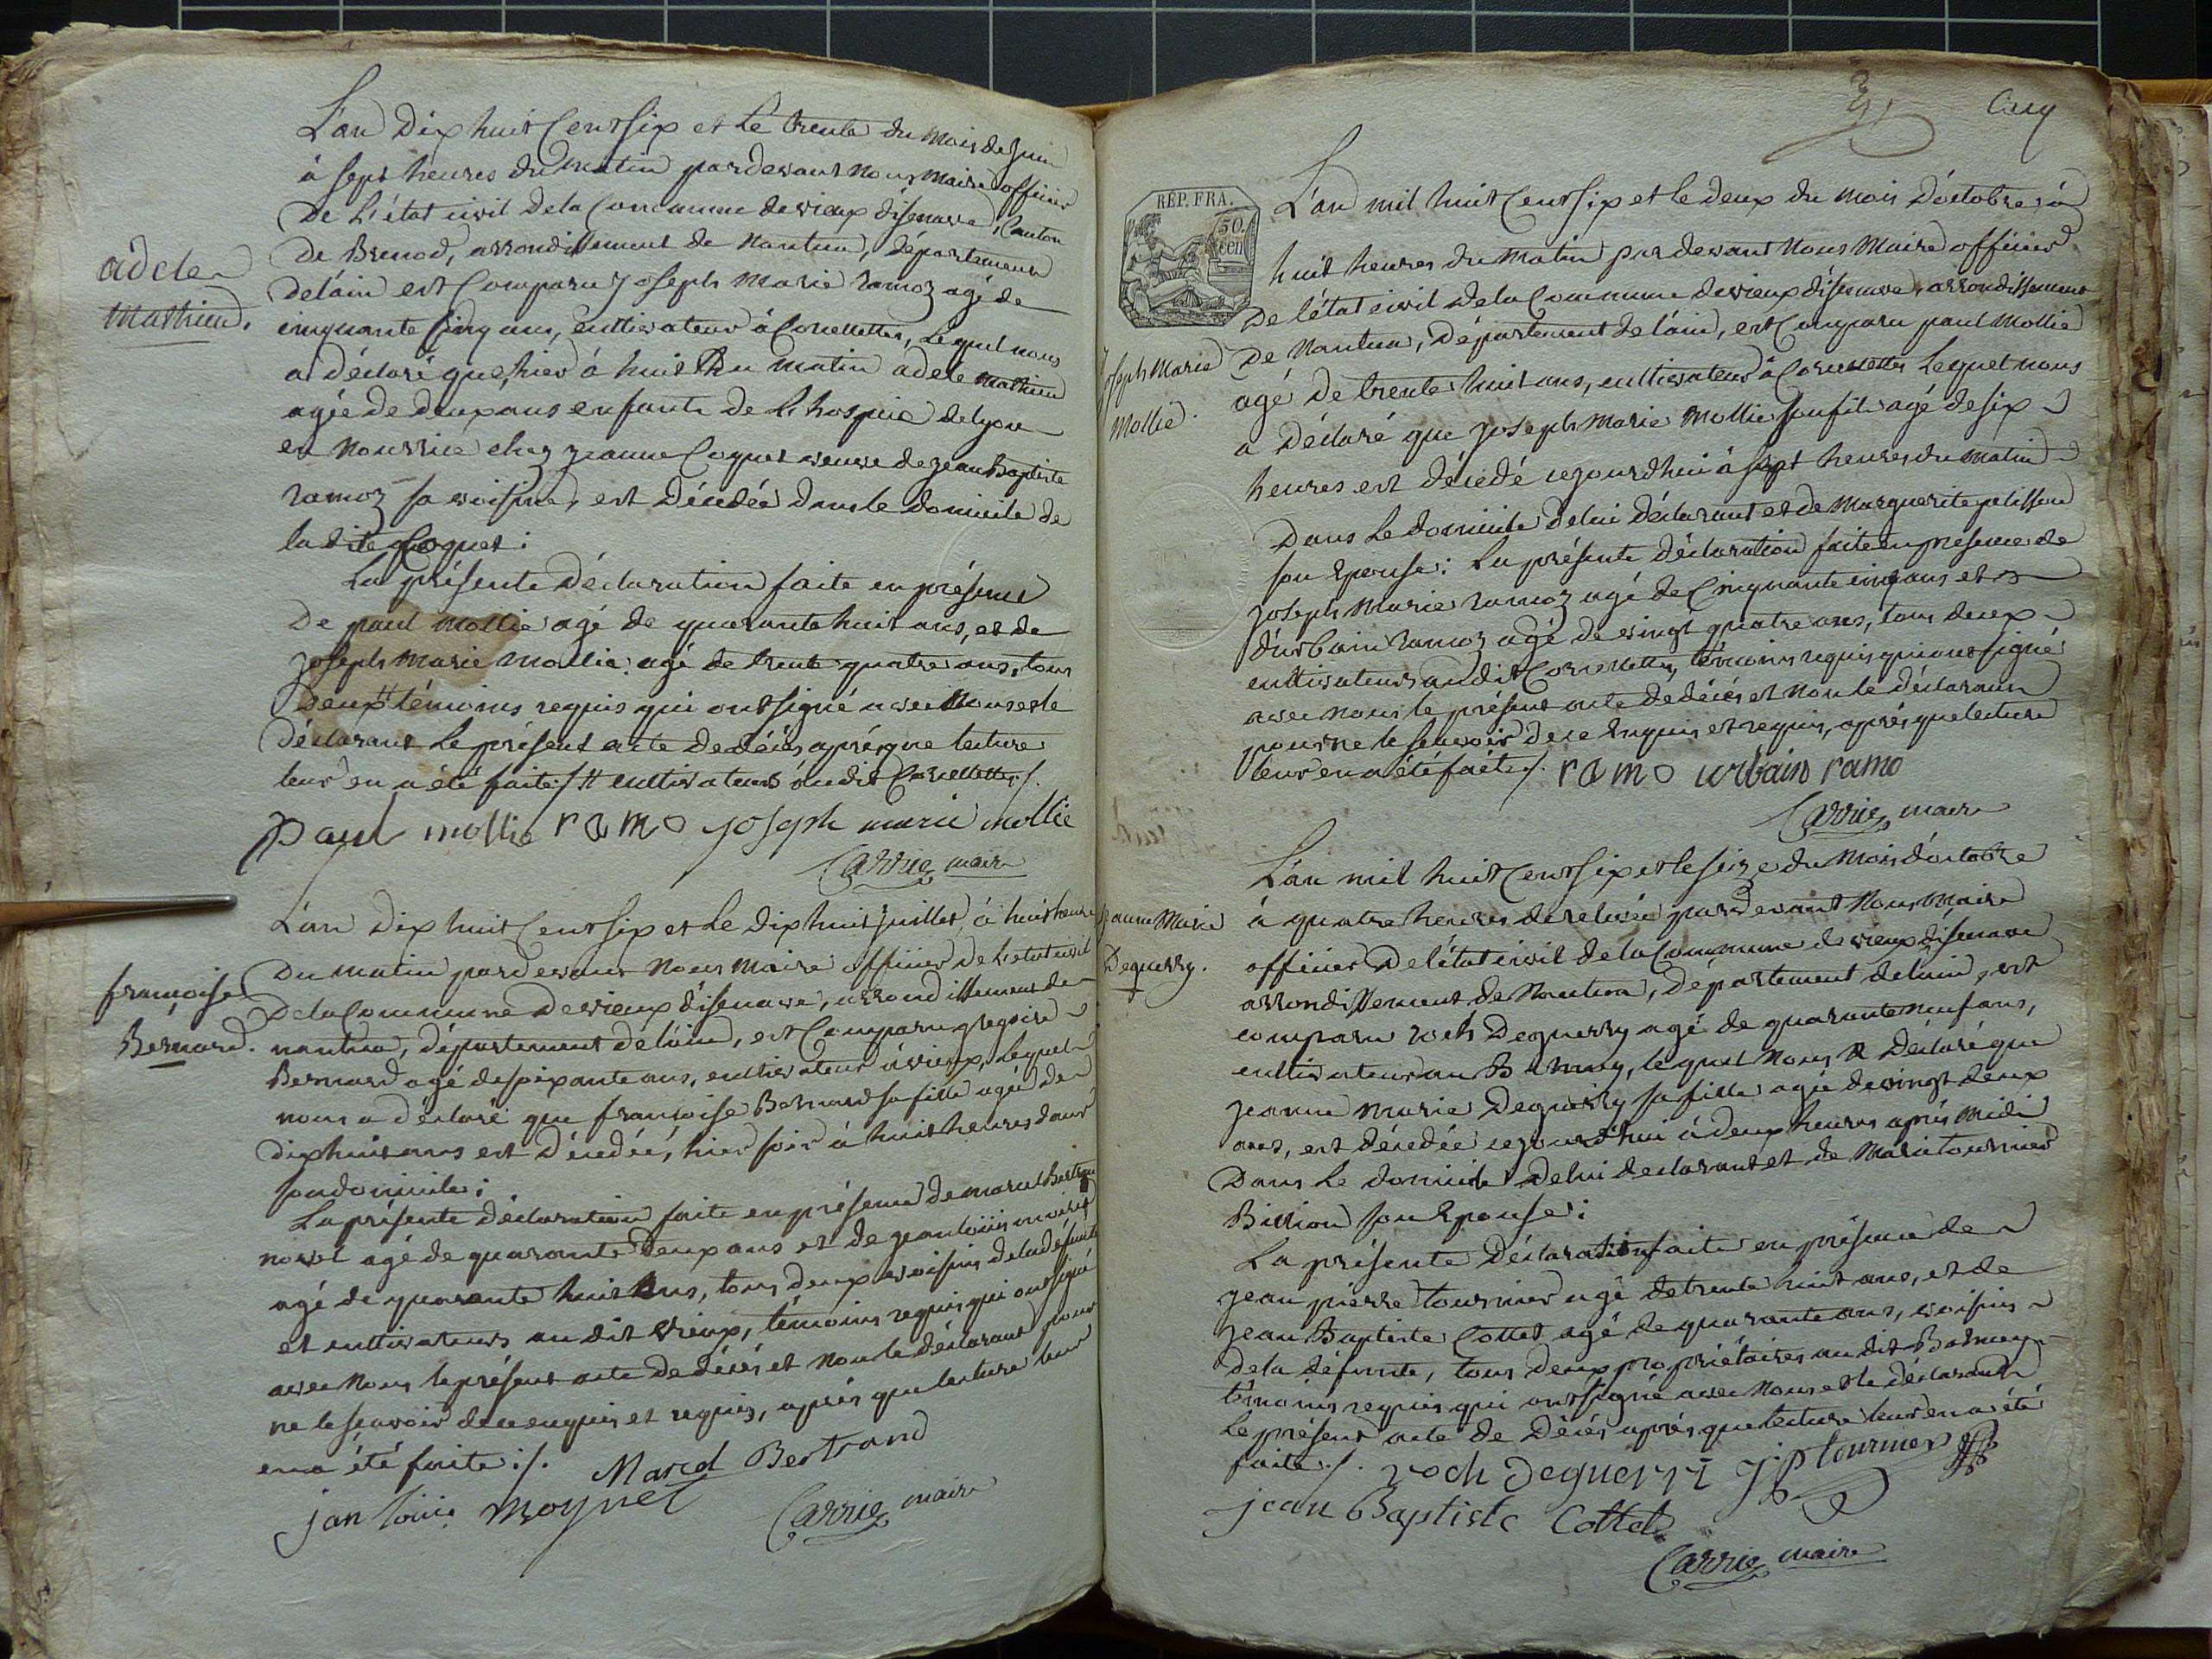 L'an Dix huit Cent Six et Le trente du mois de Juin
à Sept heures du matin pardevant nous maire officier
De L'état civil de la Commune de vieux d'isenave, Canton
De Brenod, arrondissement de nantua, département
adele
Delain est Comparu Joseph Marie ramoz agé de
Mathieu.
cinquante Cinq ans, cultivateur à Corcelettes, Lequel nous
a déclaré que, hier à huit h du matin adele mathieu
agée de deux ans enfant de L'hospice de lyon
en nourrice chez jeanne Coquet veuve de jean Baptiste
ramoz sa voisine, est Décédée dans le domicile de
la dite Coquet :
La présente Déclaration faite en présence
De paul Mollie agé de quarante huit ans, et de
Joseph Marie Mollie agé de trente quatre ans, tous
Deux # témoins requis qui ont signé avec Nous et le
déclarant Le présent acte de décès, après que lecture
leur en a été faite /. # cultivateurs audit Corcelettes /.
paul mollie ramo joseph marie mollie
Carrie maire
L'an Dix huit Cent Six et Le dix huit juillet, à huit heures
Du matin pardevant nous Maire officier de L'état civil
françoise
De la Commune de vieux d'isenave, arrondissement de
Bernard.
nantua, département de lain, est Comparu gregoire
Bernard agé de soixante ans, cultivateur à vieux, Lequel
nous a déclaré que françoise Bernard sa fille agée de
dix huit ans est Décédée, hier soir à huit heures dans
son domicile :
La présente déclaration faite en présence de marcel Bertrand
novel agé de quarante deux ans et de jean louis moinet
agé de quarante huit ans, tous deux voisins de la défunte
et cultivateurs au dit vieux, témoins requis qui ont signé
avec Nous le présent acte de décès et non le déclarant pour
ne le scavoir de ce enquis et requis, après que lecture leur
en a été faite :/.
Marcel Bertrand
jan louis moynet
Carrie maire
L'an mil huit Cent Six et le deux du mois d'octobre à
RÉP. FRA.
50.
cen
huit heures du matin pardevant Nous Maire officier
De l'état civil de la Commune de vieux d'isenave, arrondissement
De Nantua, Département de lain, est Comparu paul Mollie
Joseph Marie
Mollie.
agé de trente huit ans, cultivateur à Corcelettes Lequel nous
a Déclaré que Joseph Marie Mollie son fils agé de six
heures est décédé cejourdhui à sept heures du matin
Dans Le domicile de lui déclarant et de Marguerite pelisson
son Epouse : La présente déclaration faite en presence de
Joseph Marie ramoz agé de Cinquante cinq ans et
d'urbain ramoz agé de vingt quatre ans, tous deux
cultivateurs audit Corcelettes, témoins requis qui ont signé
avec nous le présent acte de décès et non le déclarant
pour ne le scavoir de ce Enquis et requis, après que lecture
leur en a été faite /. ramo urbain ramo
Carrie maire
L'an mil huit Cent Six et le seize du Mois d'octobre
jeanne Marie
à quatre heures de relevée pardevant Nous Maire
Deguerry.
officier De l'état civil de la Commune de vieux d'isenave
arrondissement de Nantua, Département de lain, est
comparu roch Deguerry agé de quarante neuf ans,
cultivateur au Balmay, lequel nous a Déclaré que
jeanne Marie Deguerry sa fille agée de vingt deux
ans, est décédée cejourd'hui à deux heures après midi
Dans Le domicile de lui declarant et de Marie tournier
Billion son Epouse :
La présente Déclaration faite en présence de
jean pierre tournier agé de trente huit ans, et de
jean Baptiste Cottet agé de quarante ans, voisins
de la défunte, tous deux propriétaires au dit Balmay
témoins requis qui ont signé avec nous et le déclarant
Le présent acte de Décès après que lecture leur en a été
faite /. roch deguerri j p tournier
jean Baptiste Cottet
Carrie maire